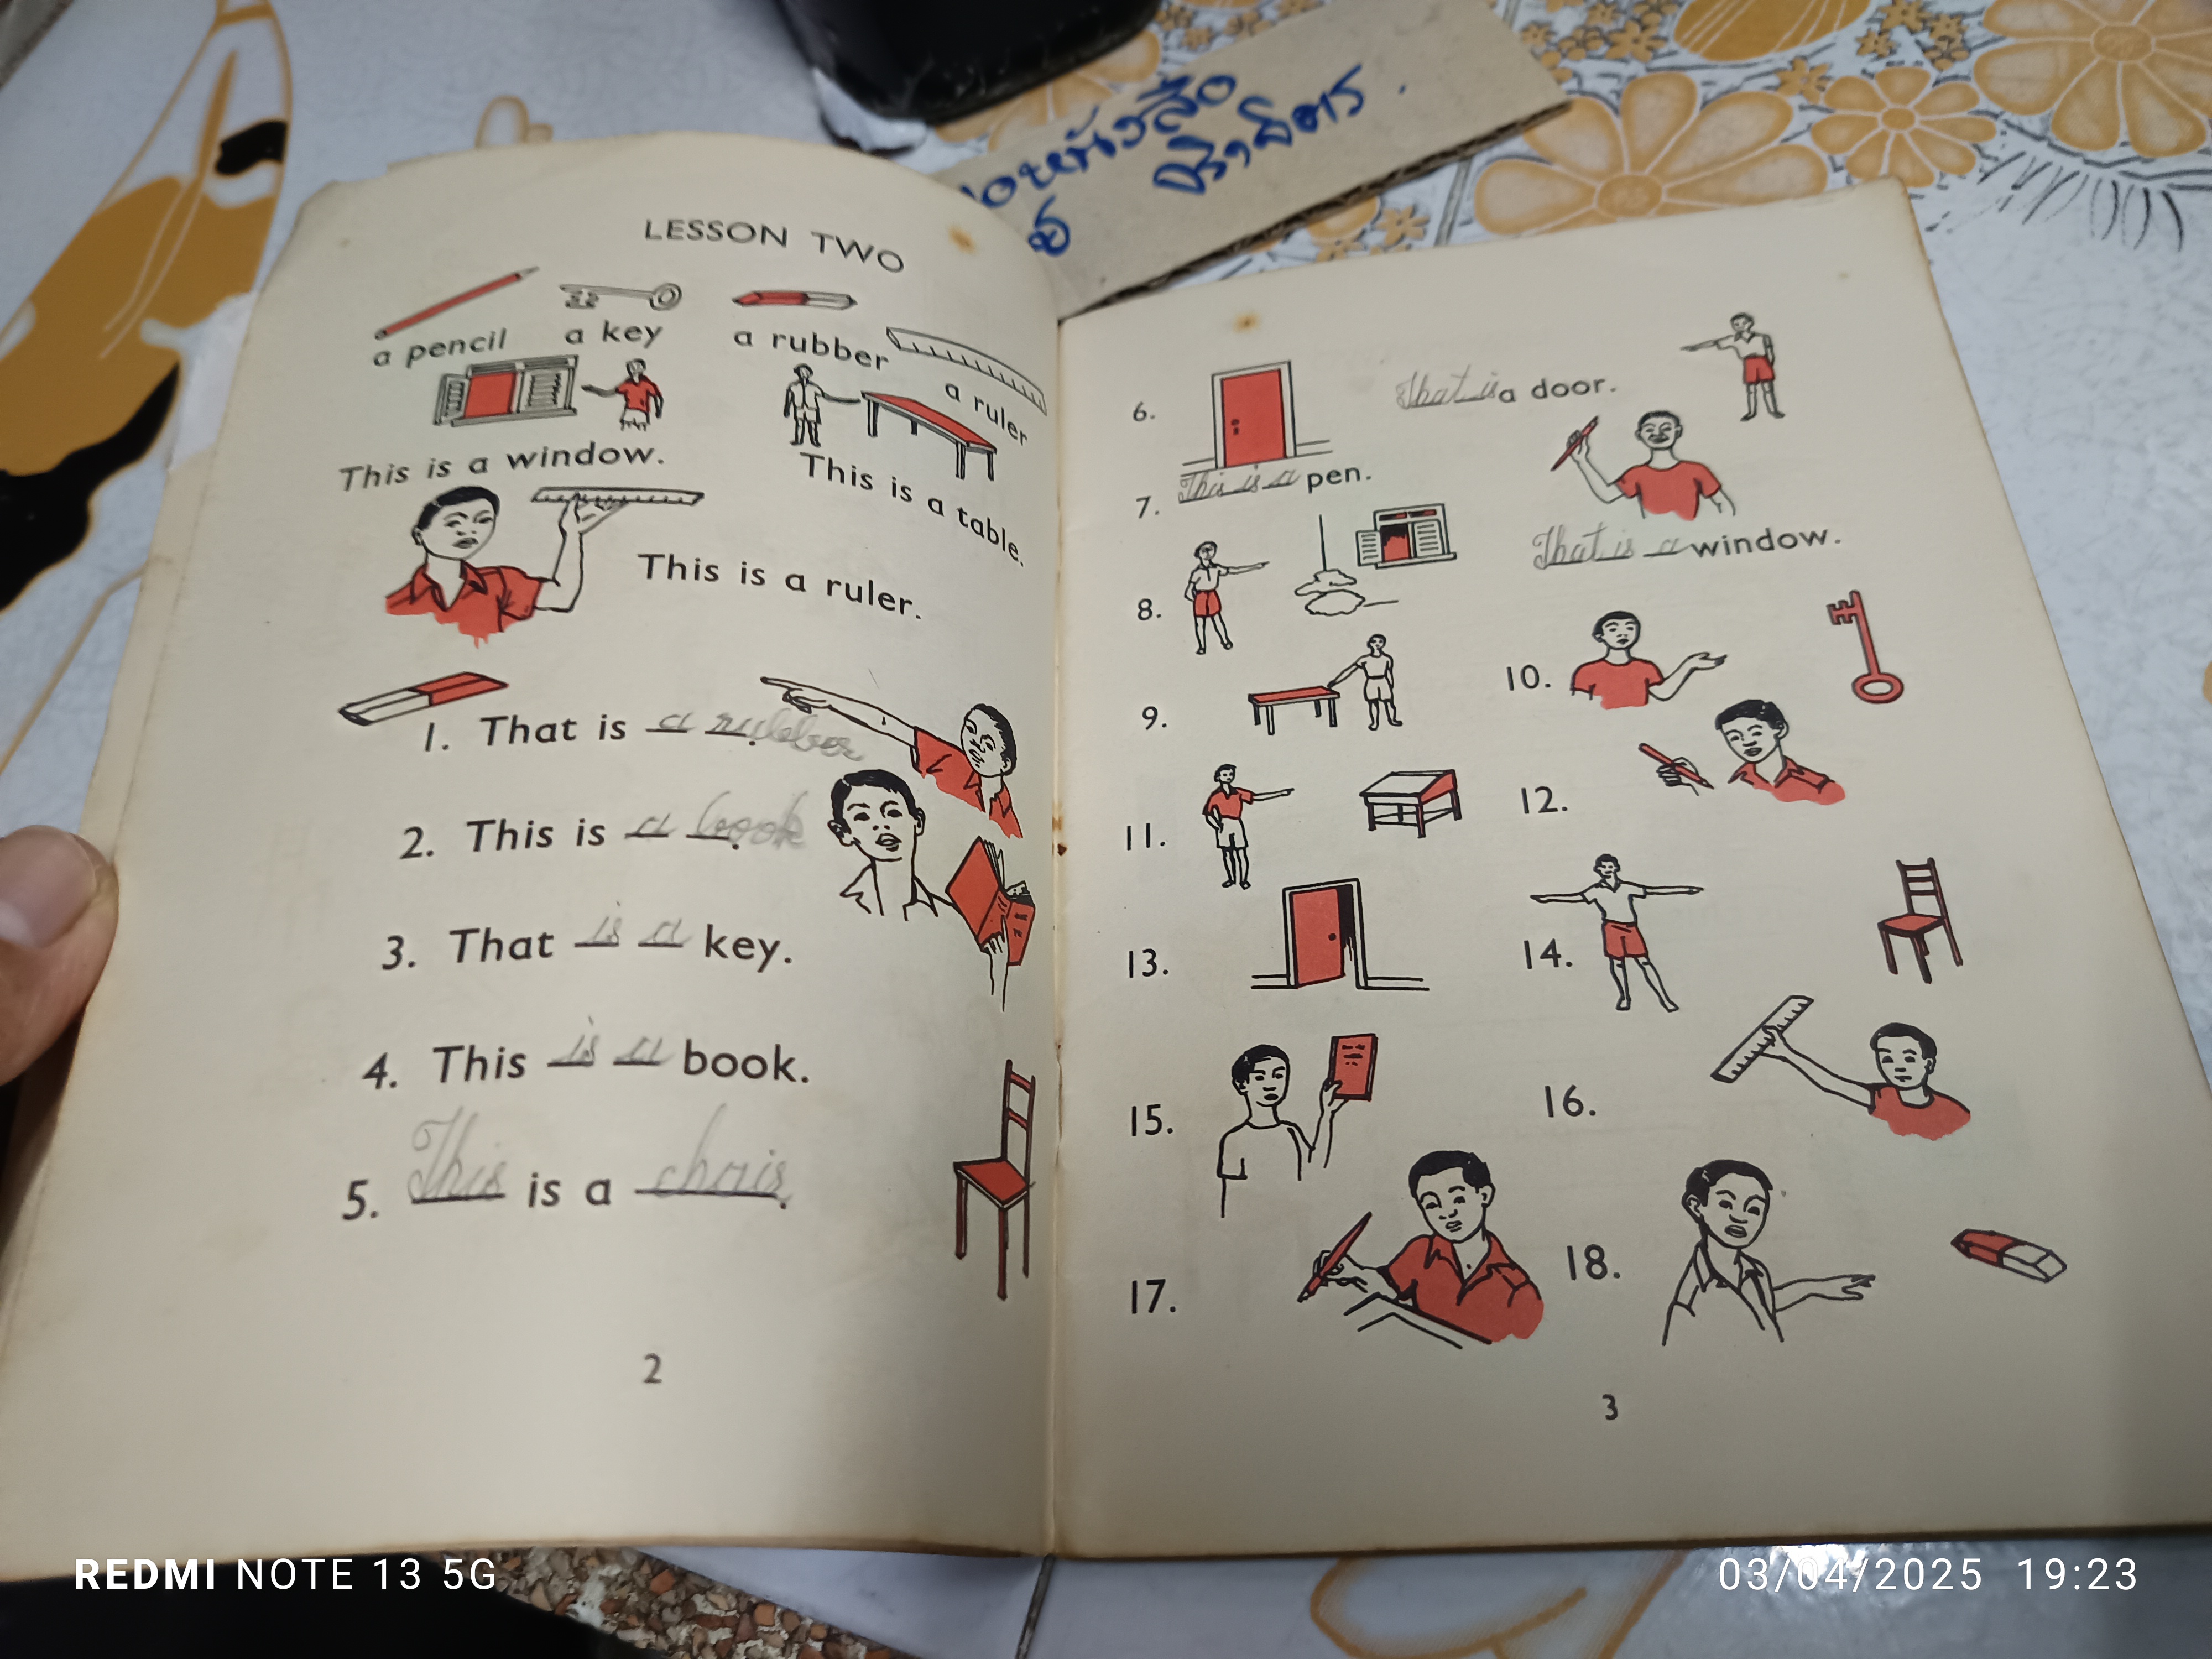 อหนังสือ
LESSON TWO
a pencil
a key
a rubber
a ruler
This is a window.
This is a table.
This is a ruler.
1. That is a rubber
2. This is a book.
3. That is a key.
4. This is a book.
5. This is a chair.
2
6. That is a door.
7. This is a pen.
8. That is a window.
9.
10.
11.
12.
13.
14.
15.
16.
17.
18.
3
REDMI NOTE 13 5G
03/04/2025 19:23